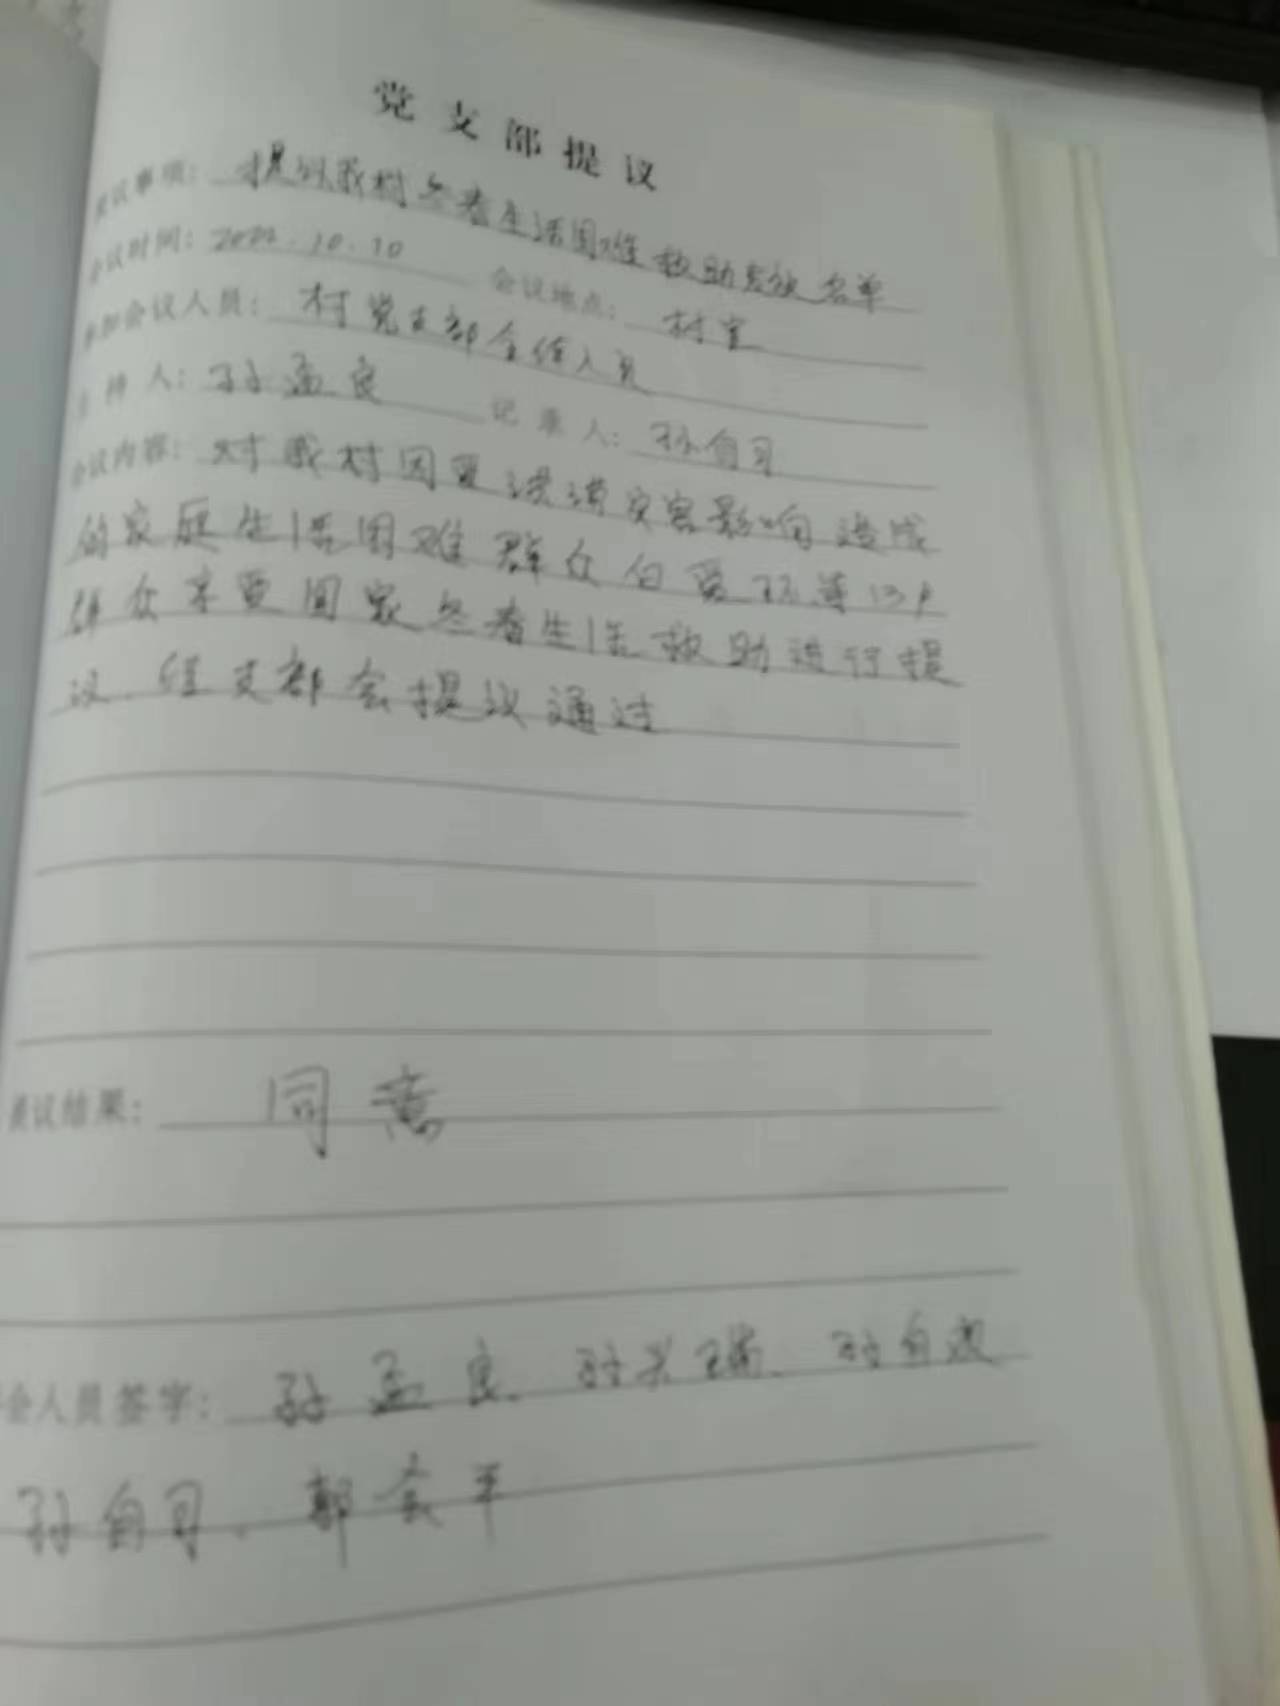 党支部提议
议事项：提议我村冬春生活困难救助名单
会议时间：2022.10.10 会议地点：村室
参加会议人员：村党支部全体人员
主持人：孙孟良 记录人：孙自习
会议内容：对我村因受洪涝灾害影响造成
的家庭生活困难群众白爱环等13户
群众享受国家冬春生活救助进行提
议.经支部会提议通过
议结果：同意
会人员签字：孙孟良、孙兴瑞、孙自
孙自习、郭会平